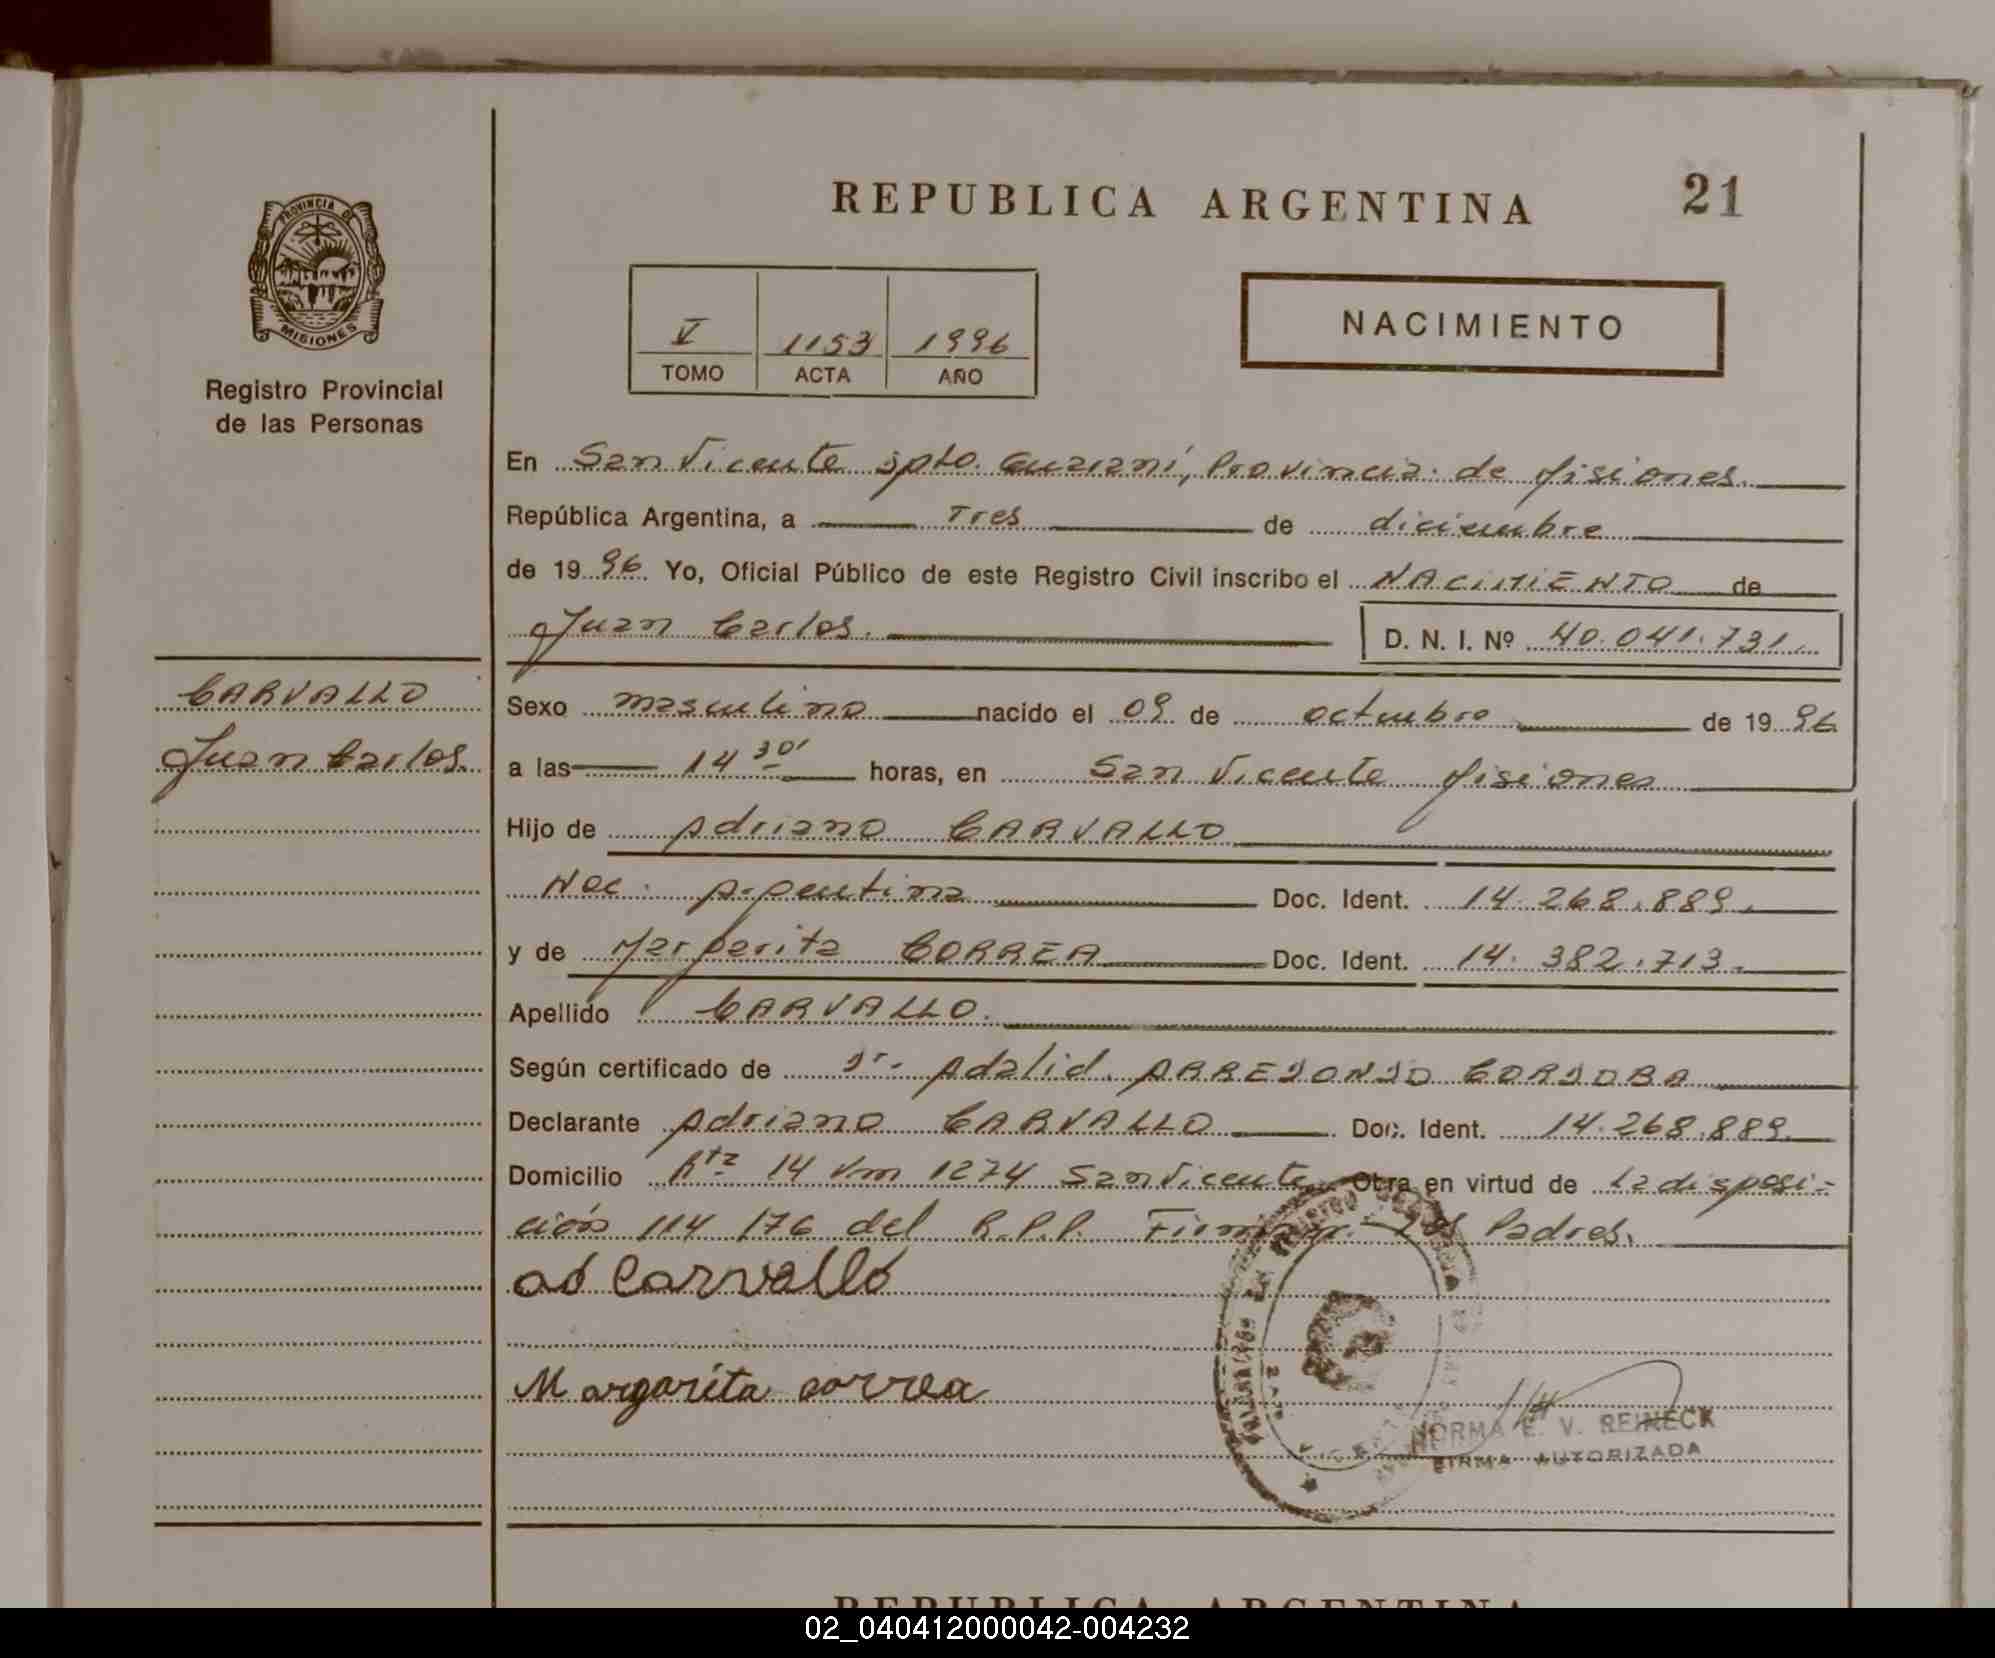 REPUBLICA ARGENTINA
21
PROVINCIA DE
MISIONES
Registro Provincial
de las Personas
V 1153 1996
TOMO ACTA AÑO
NACIMIENTO
En San Vicente Dpto. Guaraní, Provincia de Misiones.
República Argentina, a Tres de diciembre
de 1996. Yo, Oficial Público de este Registro Civil inscribo el NACIMIENTO de
Juan Carlos. D. N. I. Nº 40.041.731.
CARVALLO
Juan Carlos.
Sexo masculino nacido el 09 de octubre de 1996
a las 14 30' horas, en San Vicente Misiones
Hijo de Adriano CARVALLO
Nac. Argentina Doc. Ident. 14.268.889.
y de Margarita CORREA Doc. Ident. 14.382.713.
Apellido CARVALLO.
Según certificado de Dr. Adalid ARREDONDO CORDOBA
Declarante Adriano CARVALLO Doc. Ident. 14.268.889.
Domicilio Rta 14 Km 1274 San Vicente Obra en virtud de la disposi-
ción 114/76 del R.P.P. Firman: los Padres.
ad Carvallo
Margarita correa
NORMA E. V. REINECK
FIRMA AUTORIZADA
REPUBLICA ARGENTINA
02_040412000042-004232